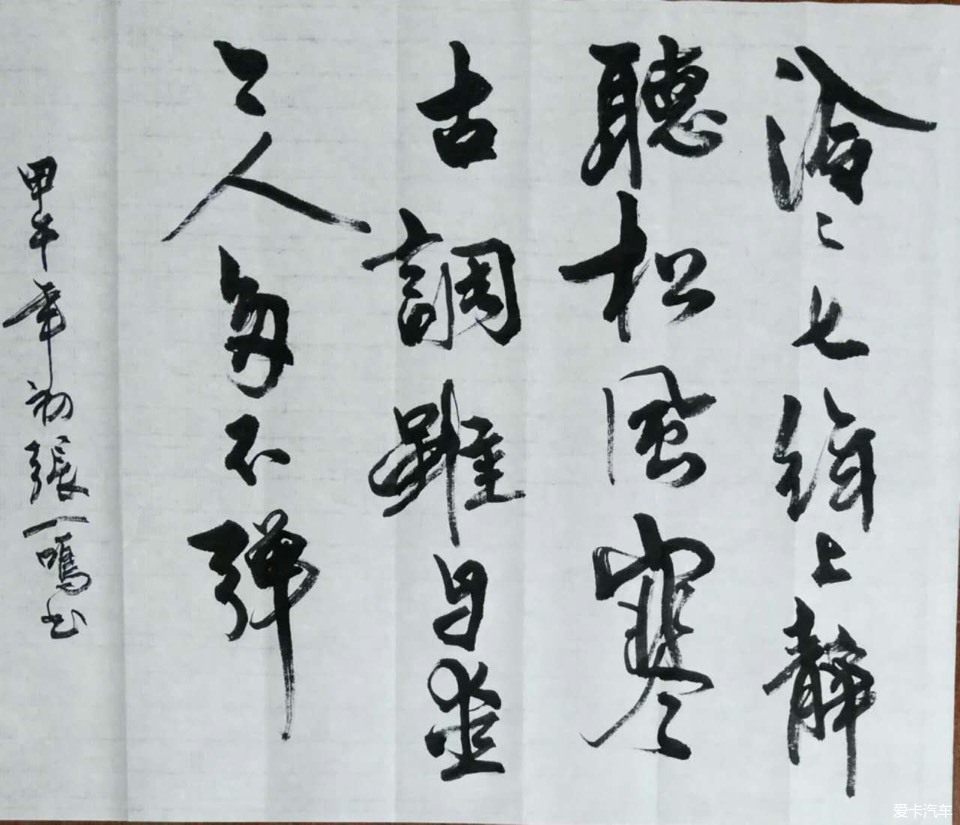 泠々七絃上靜
聽松風寒
古調雖自愛
今人多不彈
甲午年初張一鳴书
爱卡汽车